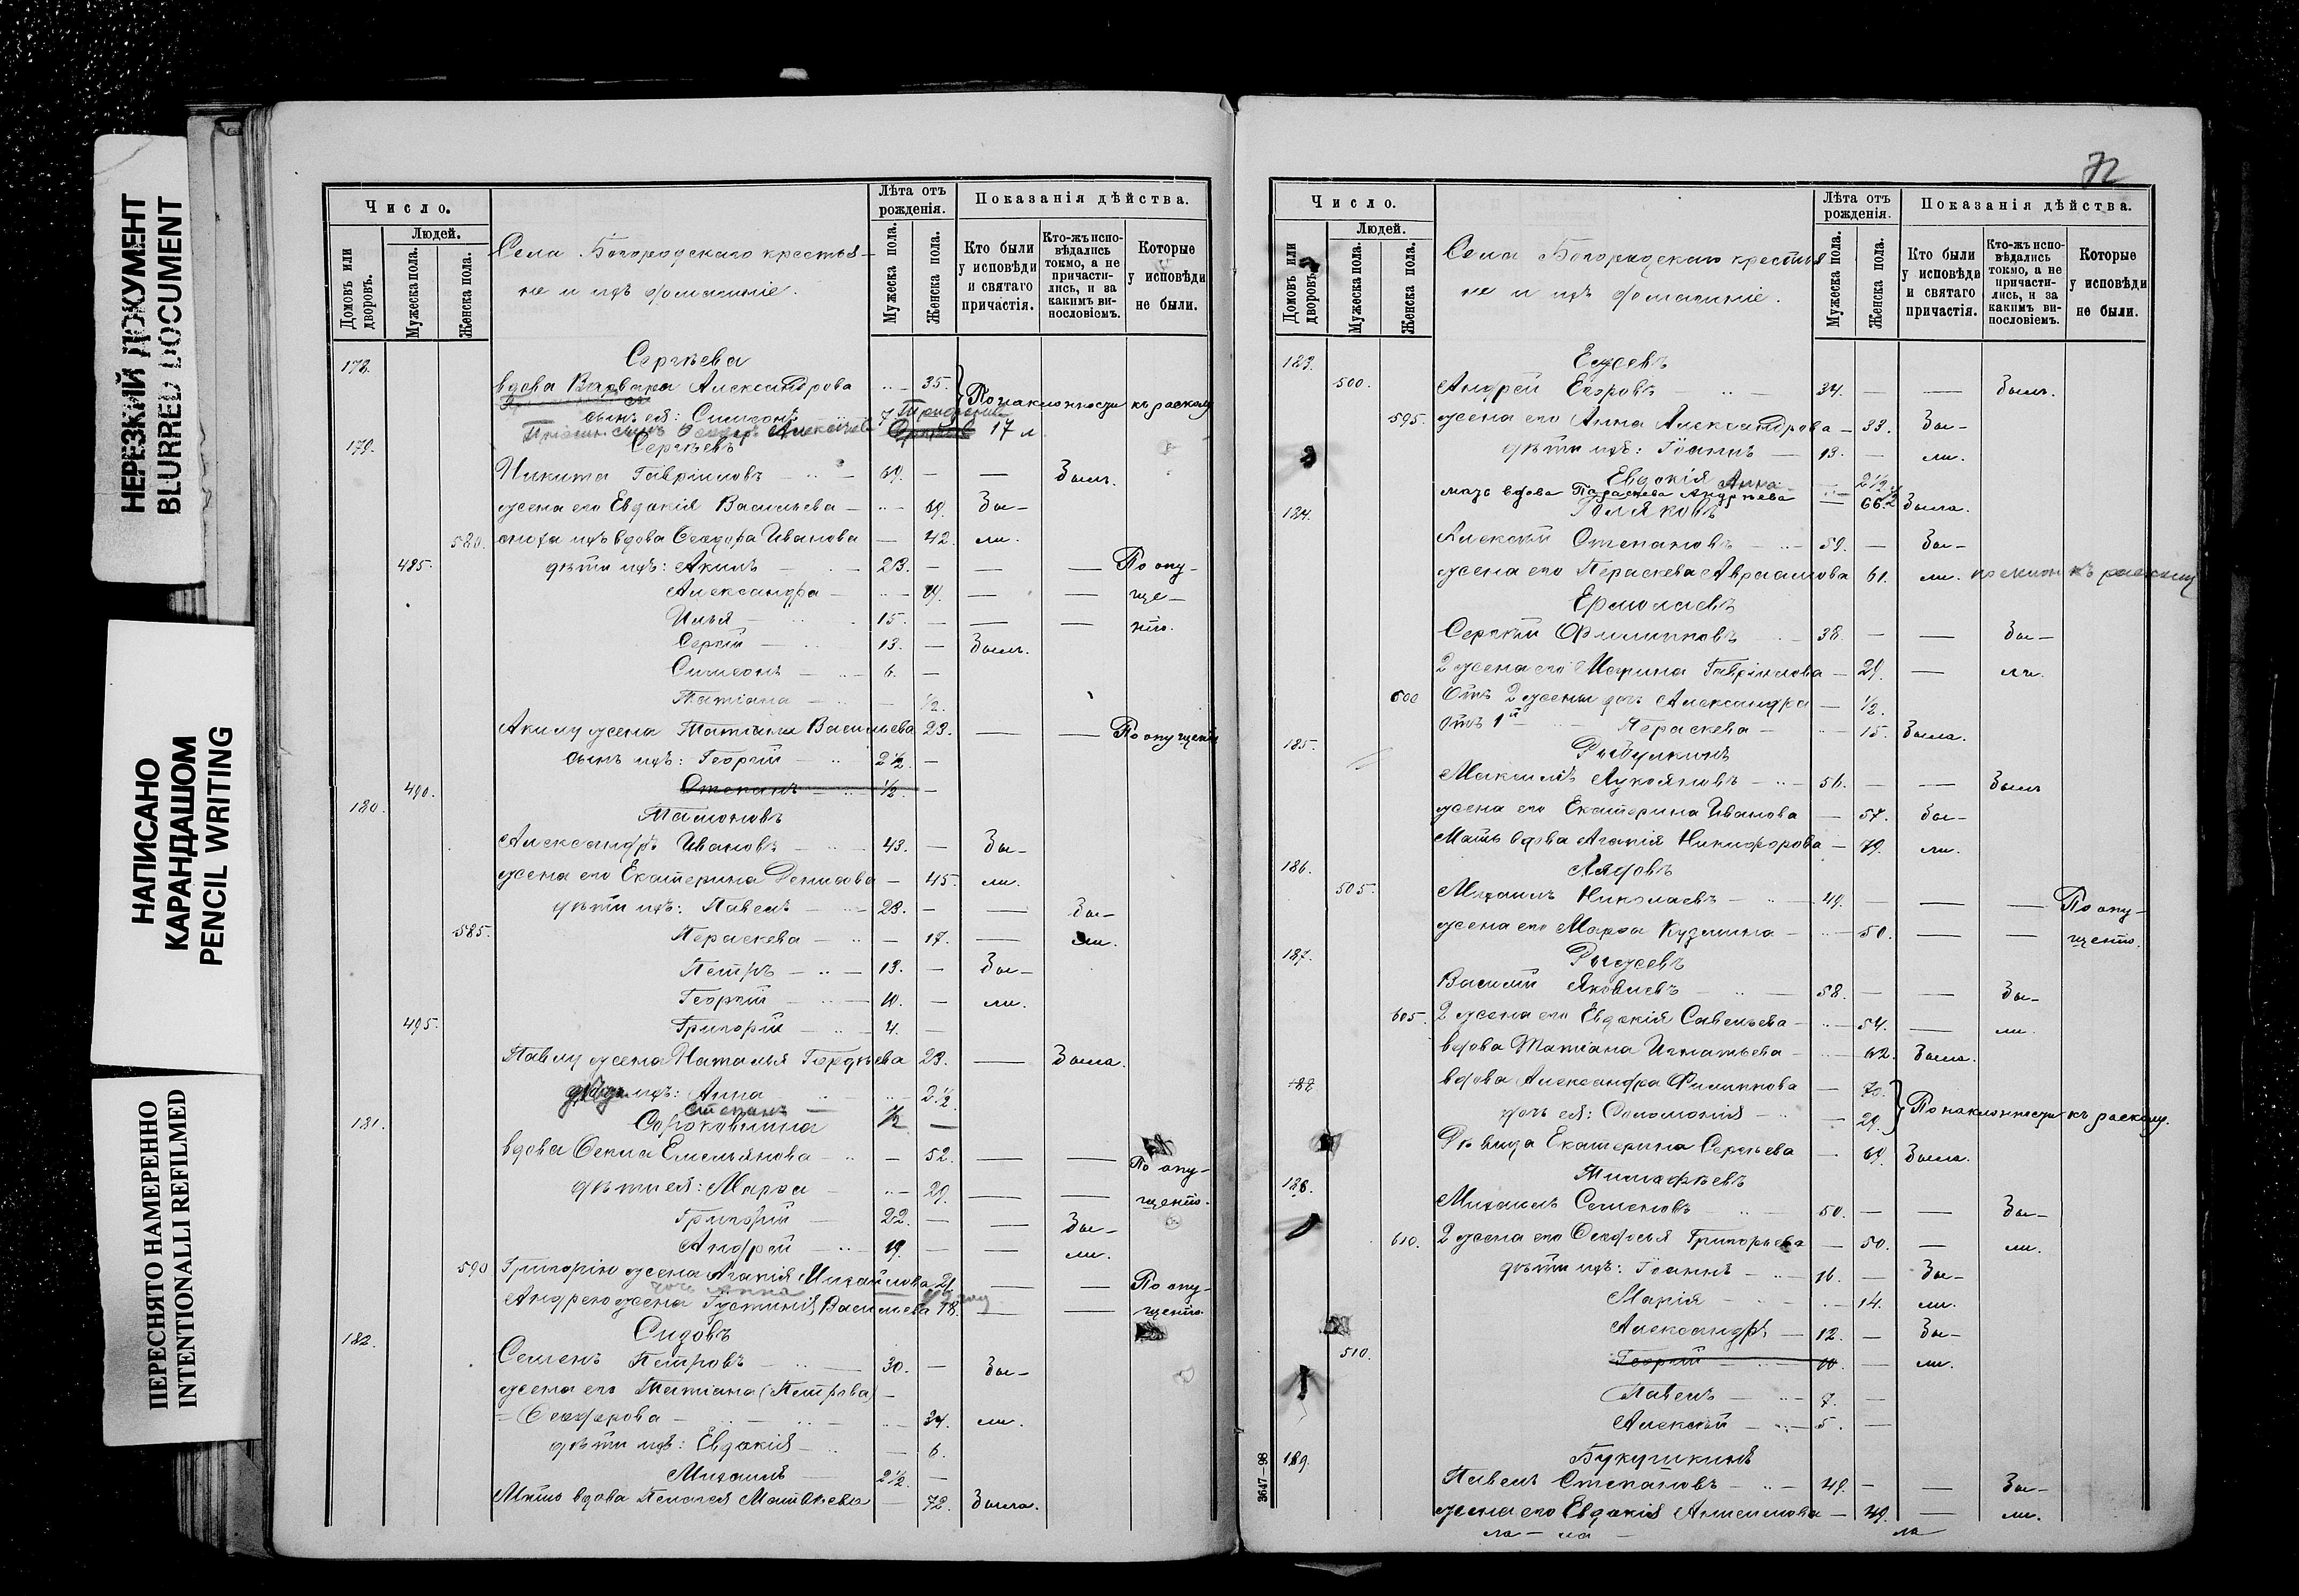 НЕРЕЗКИЙ ДОКУМЕНТ
BLURRED DOCUMENT
НАПИСАНО
КАРАНДАШОМ
PENCIL WRITING
ПЕРЕСНЯТО НАМЕРЕННО
INTENTIONALLI REFILMED
Число.
Людей.
Домовъ или дворовъ.
Мужеска пола.
Женска пола.
Села Богородскаго крестья-
не и ихъ домашніе.
Лѣта отъ рожденія.
Мужеска пола.
Женска пола.
Показанія дѣйства.
Кто были у исповѣди и святаго причастія.
Кто-жъ исповѣдались токмо, а не причастились, и за какимъ виномъ.
Которые у исповѣди не были.
178. Сергѣева
вдова Варвара Александрова 35. По наклонности къ расколу
сынъ ея: Симеонъ 7
17 л
179. Сергѣевъ
Никита Гавриловъ 69. — — Былъ.
жена его Евдокія Васильева 69. Бы-
580. сноха ихъ вдова Ѳеодора Иванова — 42. ли.
485. дѣти ихъ: Акимъ 23. — — — По опу-
Александра 19. — — ще-
Илья 15. — — — нію.
Сергій 13. — Былъ.
Симеонъ 6. —
Татіана — 1/2.
Акиму жена Татіана Васильева 23. — — По опущенію
сынъ ихъ: Георгій 2 1/2. —
490. Степанъ 1/2. —
180. Мамоновъ
Александръ Ивановъ 43. — Бы-
жена его Екатерина Денисова — 45. ли.
дѣти ихъ: Павелъ 23. — — Бы-
585. Параскева — 17. — ли.
Петръ 13. — Бы-
Георгій 10. — ли.
495. Григорій 4. —
Павлу жена Наталья Гордѣева 23. — Была.
ихъ: Анна 2 1/2
Степанъ 1/2 —
181. Сороковнина
вдова Ѳекла Емельянова — 52. — — По опу-
дѣти ея: Марѳа 29. — — щенію.
Григорій 22. — — Бы-
Андрей 19. — — ли.
590 Григорію жена Агапія Михайлова 21 — — По опу-
дочь Анна
Андрею жена Густинія Васильева 18. — — щенію.
182. Сизовъ
Семенъ Петровъ 30. — Бы-
жена его Татіана (Петрова) —
= Ѳеодорова — 34. ли.
дѣти ихъ: Евдокія — 6.
Михаилъ 2 1/2. —
Мать вдова Пелагея Матвѣева — 72. Была.
72
Число.
Людей.
Домовъ или дворовъ.
Мужеска пола.
Женска пола.
Села Богородскаго крестья
не и ихъ домашніе.
Лѣта отъ рожденія.
Мужеска пола.
Женска пола.
Показанія дѣйства.
Кто были у исповѣди и святаго причастія.
Кто-жъ исповѣдались токмо, а не причастились, и за какимъ виномъ.
Которые у исповѣди не были.
183.
500. Андрей Егоровъ 34. — — Былъ.
595. жена его Анна Александрова — 33. Бы-
дѣти ихъ: Іоаннъ 13. — ли.
Евдокія Анна 2 1/2
мать вдова Параскева Андреева — 66. Была.
184. Голяковъ
Алексѣй Степановъ 59. — Бы-
жена его Параскева Авраамова 61. ли. къ расколу
Ермолаевъ
Сергѣй Филипповъ 38. — — Бы-
2 жена его Марина Гаврилова — 29. — ли.
600 Отъ 2 жены дочь Александра — 1/2.
Отъ 1й Параскева — 15. Была.
185.
Максимъ Лукояновъ 56. — — Былъ
жена его Екатерина Иванова — 57. Бы-
Мать вдова Агапія Никифорова — 79. ли.
186. Лядовъ
505. Михаилъ Николаевъ 49. — — — По опу-
жена его Марѳа Кузмина 50. — — щенію.
187. Рыжеевъ
Василій Яковлевъ 58. — — Бы-
605. 2 жена его Евдокія Савельева 54. — ли.
вдова Татіана Игнатьева 62. Была.
вдова Александра Филиппова — 70. По наклонности къ расколу.
дочь ея: Соломонія 29.
Дѣвица Екатерина Сергѣева — 69. Была.
188. Тимофѣевъ
Михаилъ Семеновъ 50. — — Бы-
610. 2 жена его Ѳедосья Григорьева — 50. — ли.
дѣти ихъ: Іоаннъ 16. — Бы-
Марія 14. ли.
Александръ 12. — Бы-
510. Георгій 10. — ли.
Павелъ 7. —
Алексѣй 5. —
189. Букушкинъ
Павелъ Степановъ 49. — — Бы-
жена его Евдокія Анисимова — 49. — ли.
3647—98